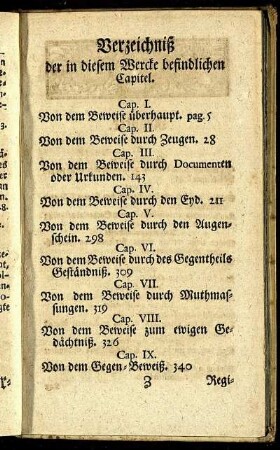 Verzeichniß
der in diesem Wercke befindlichen
Capitel.
Cap. I.
Von dem Beweise überhaupt. pag. 5
Cap. II.
Von dem Beweise durch Zeugen. 28
Cap. III.
Von dem Beweise durch Documenten
oder Urkunden. 143
Cap. IV.
Von dem Beweise durch den Eyd. 211
Cap. V.
Von dem Beweise durch den Augen-
schein. 298
Cap. VI.
Von dem Beweise durch des Gegentheils
Geständniß. 309
Cap. VII.
Von dem Beweise durch Muthmas-
sungen. 319
Cap. VIII.
Von dem Beweise zum ewigen Ge-
dächtniß. 326
Cap. IX.
Von dem Gegen-Beweiß. 340
Z Regi-